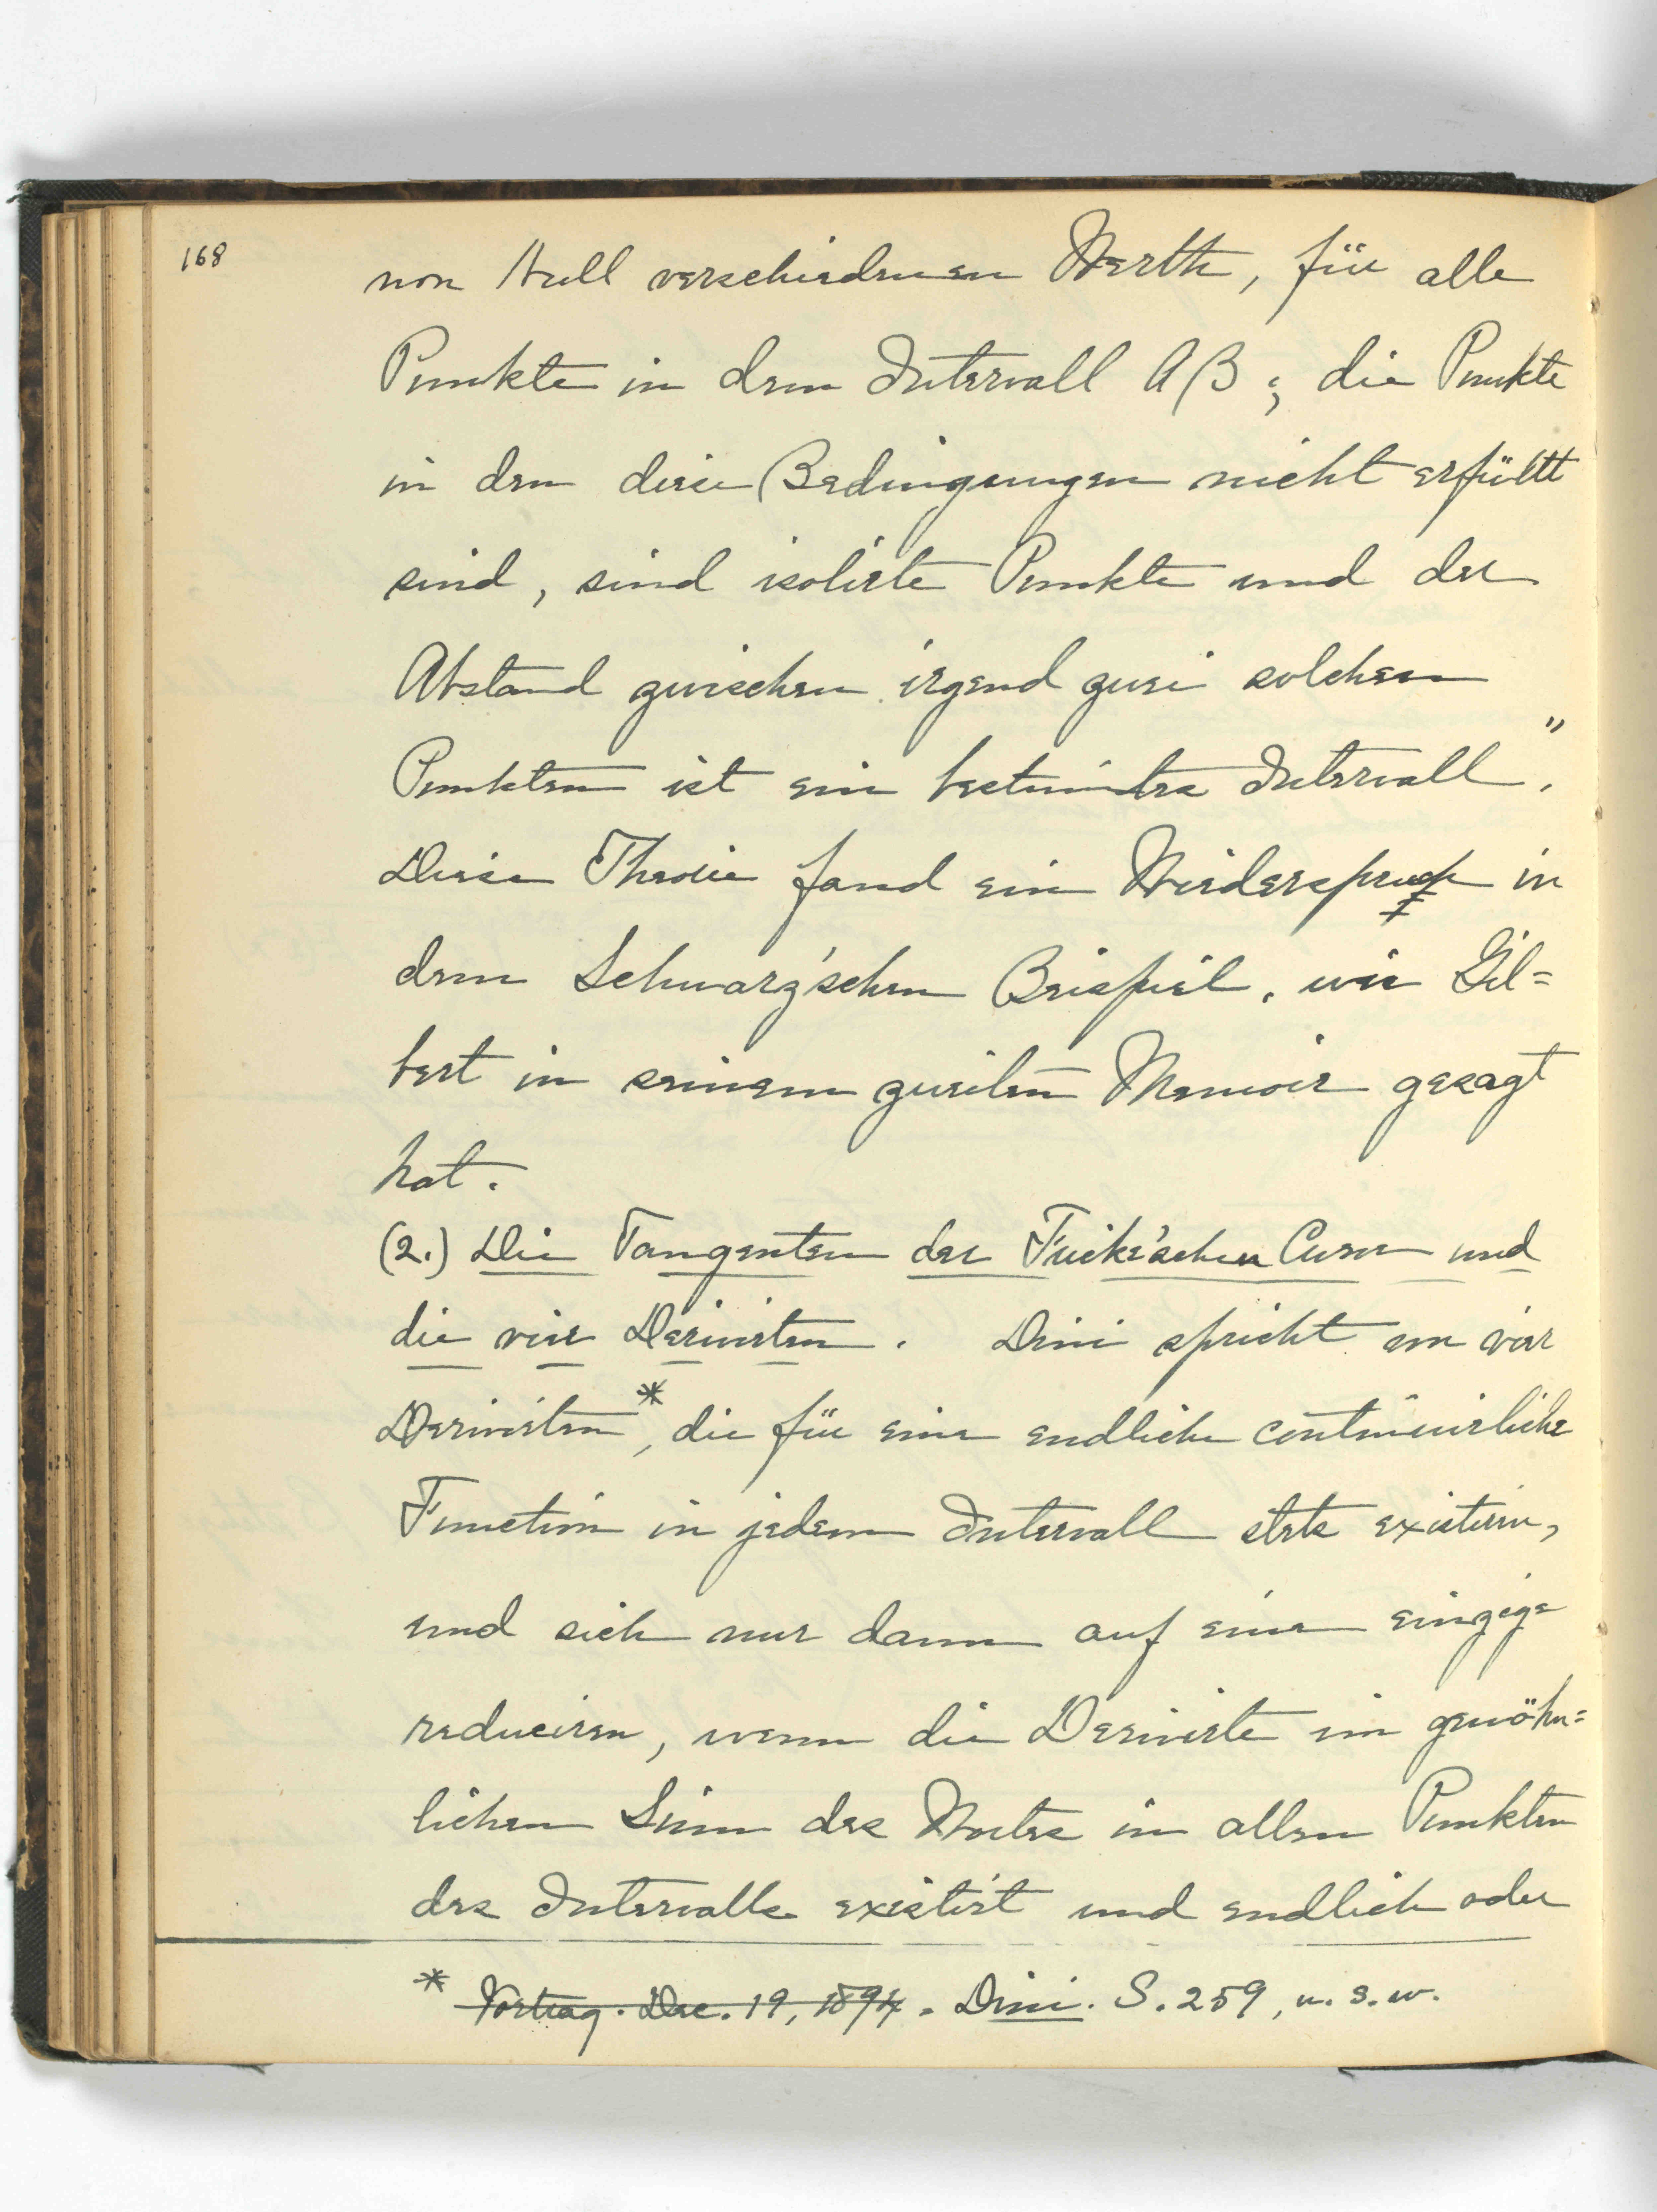 168
von Null verschiedenen Werth, für alle
Punkte in dem Intervall AB; die Punkte
in den diese Bedingungen nicht erfüllt
sind, sind isolirte Punkte und der
Abstand zwischen irgend zwei solchen
Punkten ist ein bestimtes Intervall".
Diese Theorie fand ein Wiederspruch in
dem Schwarz'schen Beispiel, wie Gil=
bert in seinem zweiten Memoir gesagt
hat.
(2.) Die Tangenten der Fricke'schen Curve und
die vier Derivirten. Dini spricht von vier
Derivirten*, die für eine endliche continuirliche
Function in jedem Intervall stets existiren,
und sich nur dann auf eine einzige
reduciren, wenn die Derivirte im gewöhn=
lichen Sinn des Wortes in allen Punkten
des Intervalls existirt und endlich oder
* Vortrag. Dec. 19, 1894. Dini. S. 259, u. s. w.